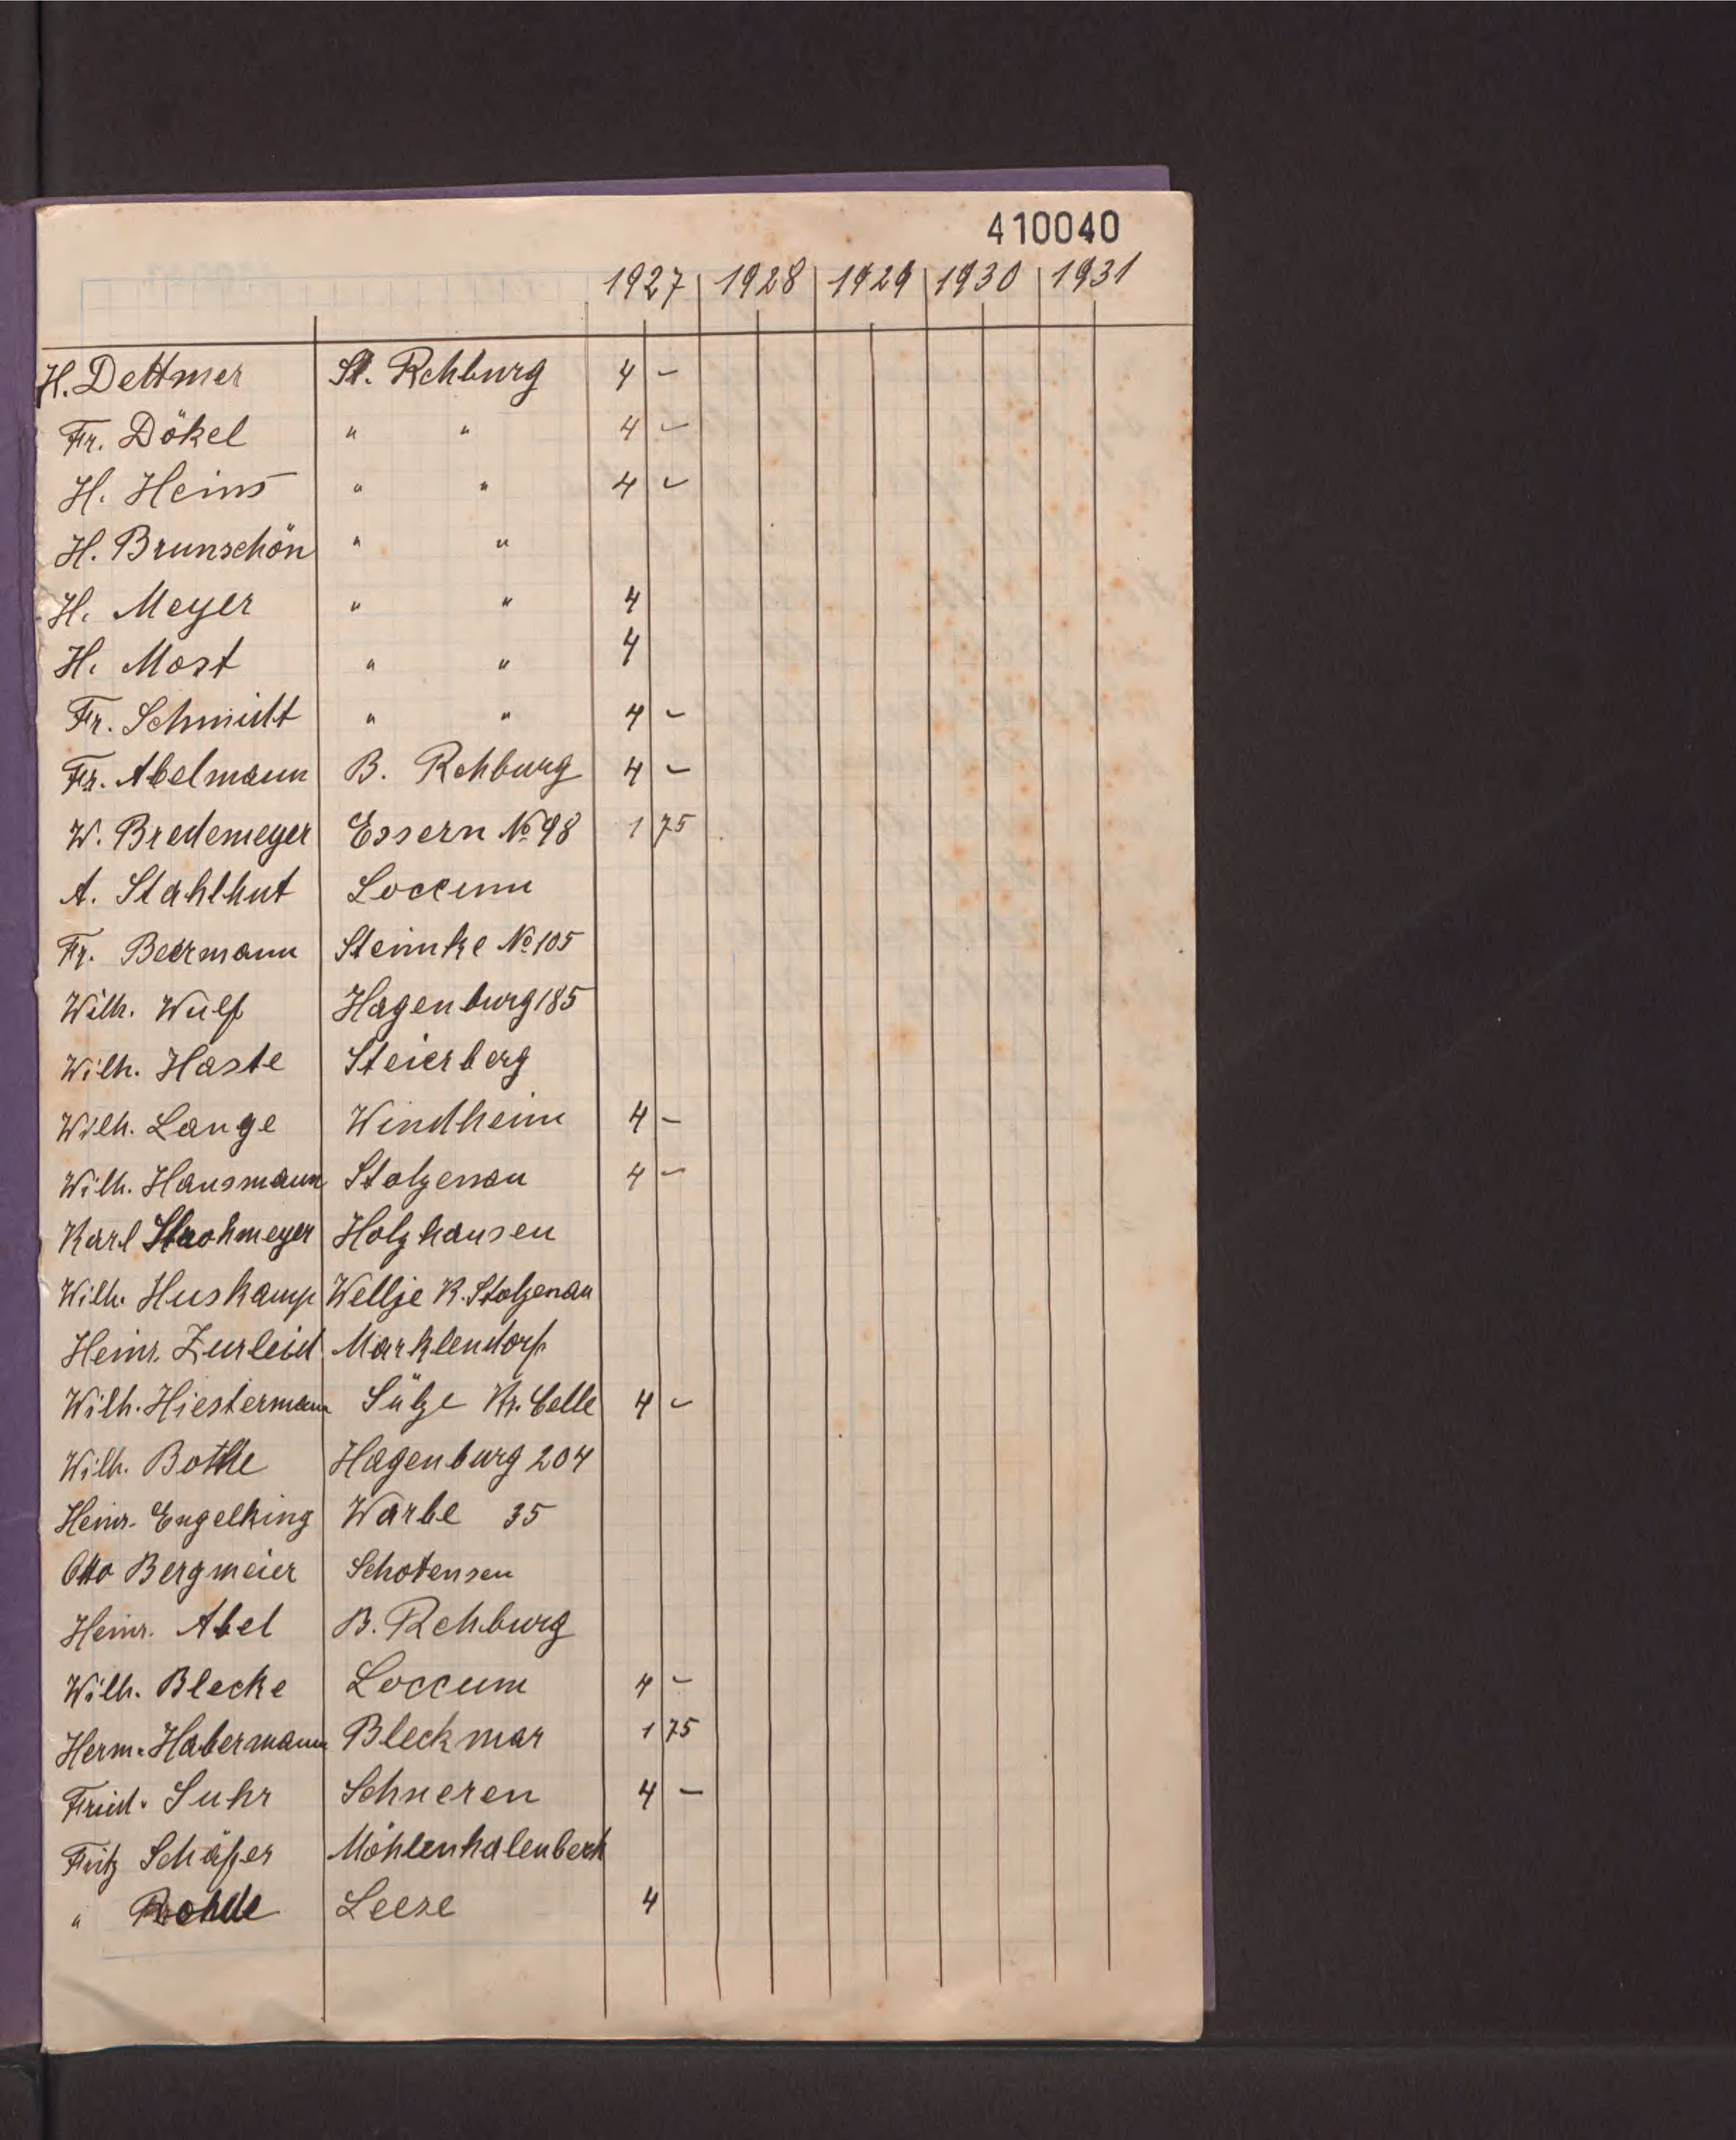 410040
1927 1928 1929 1930 1931
H. Dettmer St. Rehburg 4 -
Fr. Dökel " " 4 -
H. Heins " " 4 -
H. Brunschön " "
H. Meyer " " 4
H. Most " " 4
Fr. Schmidt " " 4 -
Fr. Abelmann B. Rehburg 4 -
W. Bredemeyer Essern № 98 1 75
A. Stahlhut Loccum
Fr. Beermann Steimke № 105
Wilh. Wulf Hagenburg 185
Wilh. Haste Steierberg
Wilh. Lange Windheim 4 -
Wilh. Hausmann Stolzenau 4 -
Karl Strohmeyer Holzhausen
Wilh. Huskamp Wellje K. Stolzenau
Heinr. Zurleid Marklendorf
Wilh. Hiestermann Sülze Kr. Celle 4 -
Wilh. Bothe Hagenburg 204
Heinr. Engelking Warbe 35
Otto Bergmeier Schotensen
Heinr. Abel B. Rehburg
Wilh. Blecke Loccum 4 -
Herm. Habermann Bleckmar 1 75
Fried. Suhr Schneren 4 -
Fritz Schäfer Möhlenhalenbeck
" Rohde Leese 4